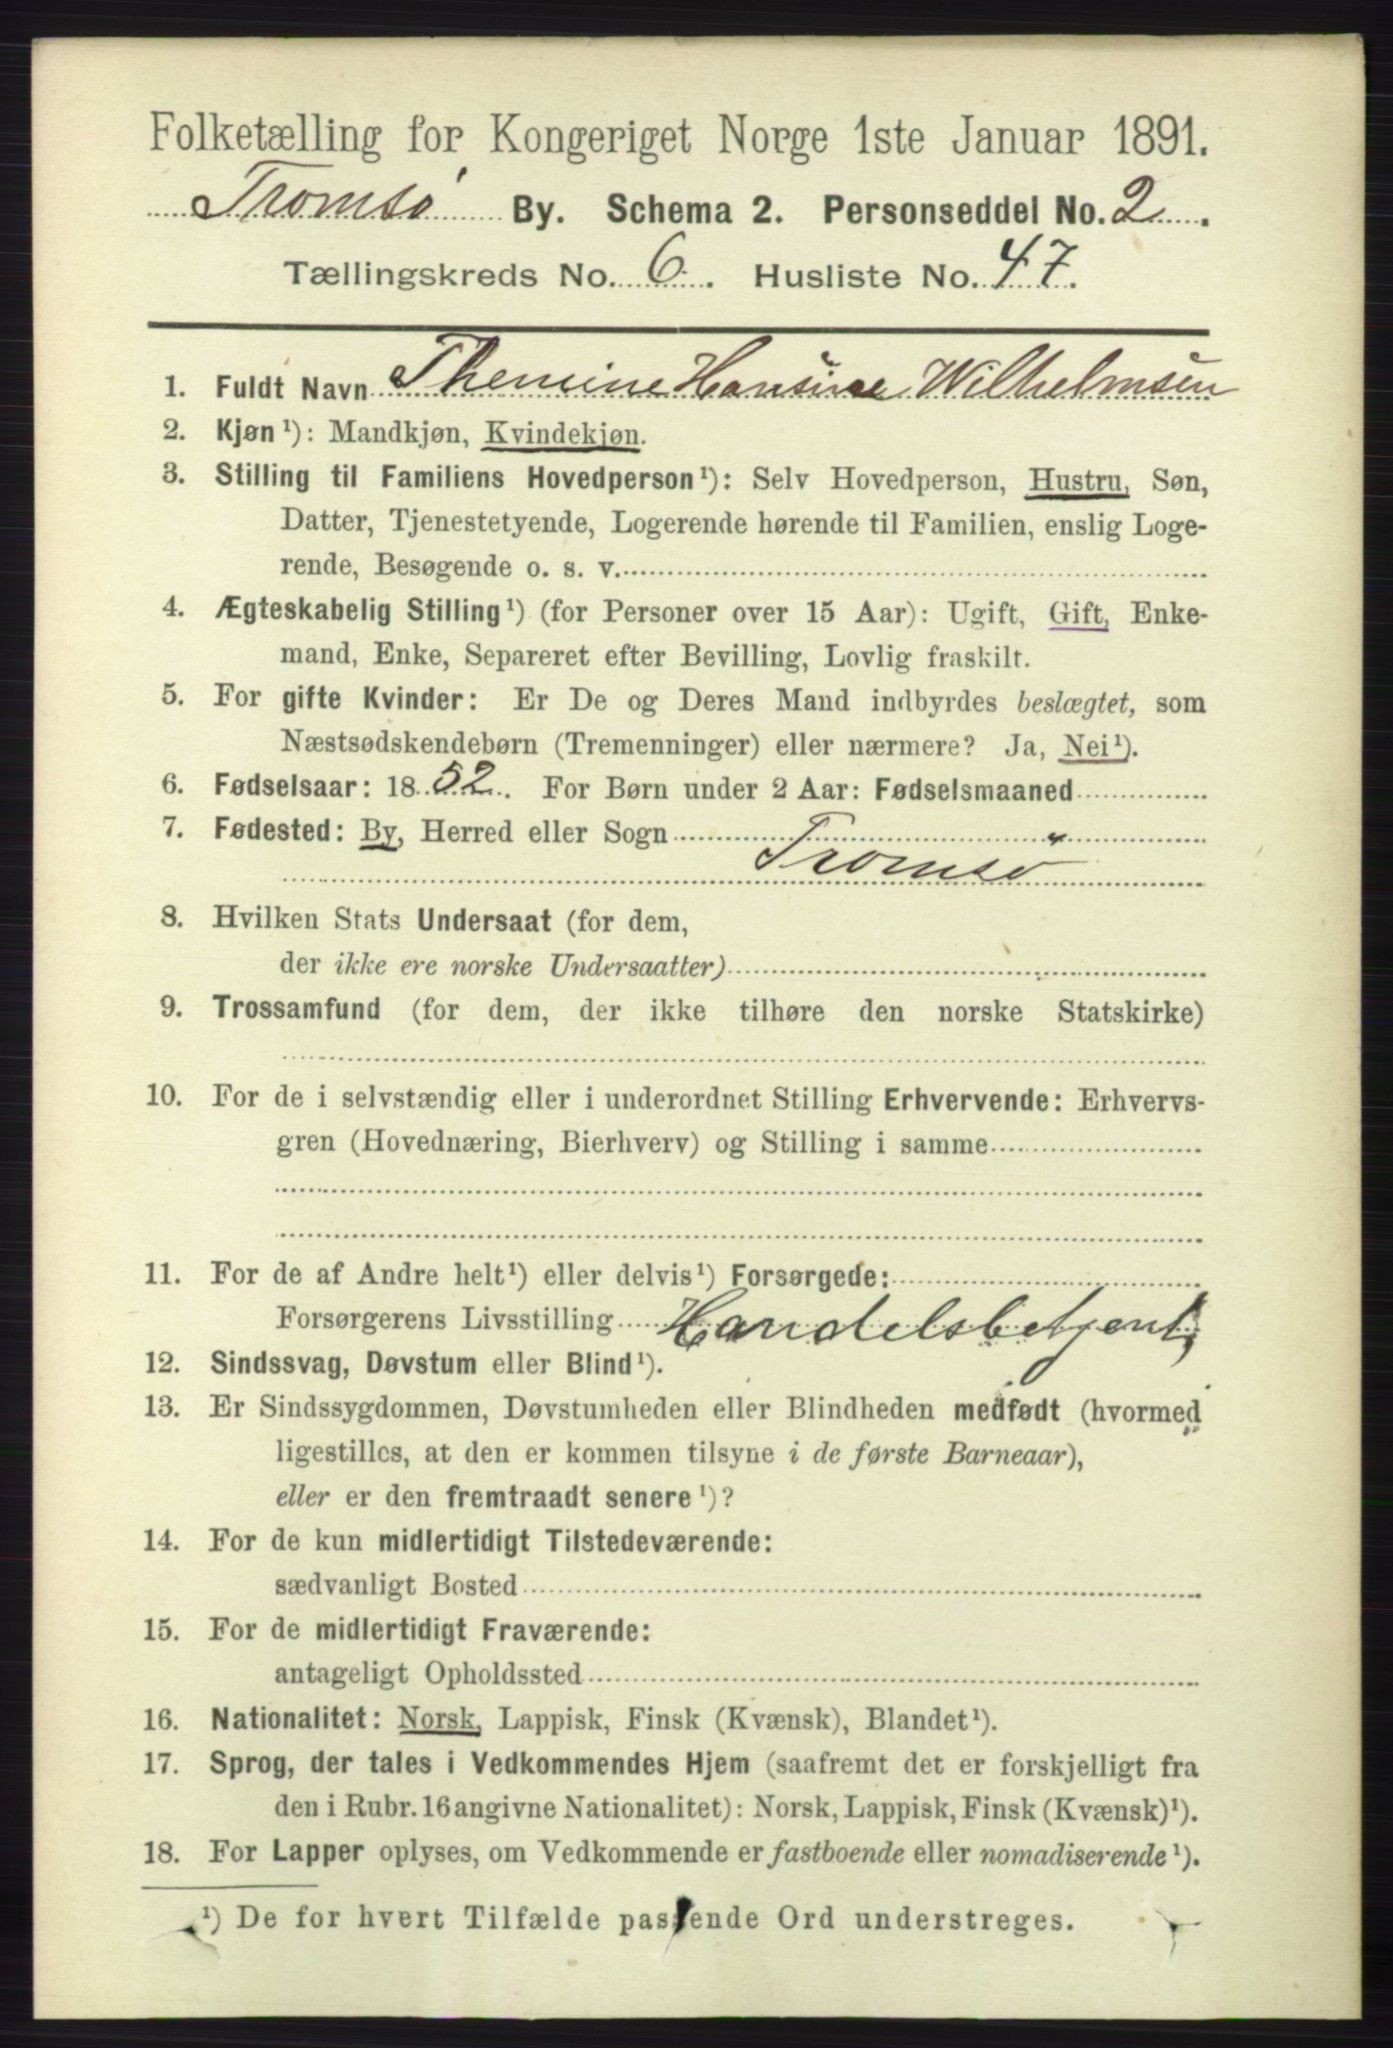 Folketælling for Kongeriget Norge 1ste Januar 1891.
Tromsø By. Schema 2. Personseddel No. 2.
Tællingskreds No. 6. Husliste No. 47.
1. Fuldt Navn Themine Hansine Wilhelmsen
2. Kjøn¹): Mandkjøn, Kvindekjøn.
3. Stilling til Familiens Hovedperson¹): Selv Hovedperson, Hustru, Søn,
Datter, Tjenestetyende, Logerende hørende til Familien, enslig Loge-
rende, Besøgende o. s. v.
4. Ægteskabelig Stilling¹) (for Personer over 15 Aar): Ugift, Gift, Enke-
mand, Enke, Separeret efter Bevilling, Lovlig fraskilt.
5. For gifte Kvinder: Er De og Deres Mand indbyrdes beslægtet, som
Næstsødskendebørn (Tremenninger) eller nærmere? Ja, Nei¹).
6. Fødselsaar: 1852. For Børn under 2 Aar: Fødselsmaaned
7. Fødested: By, Herred eller Sogn
Tromsø
8. Hvilken Stats Undersaat (for dem,
der ikke ere norske Undersaatter)
9. Trossamfund (for dem, der ikke tilhøre den norske Statskirke)
10. For de i selvstændig eller i underordnet Stilling Erhvervende: Erhvervs-
gren (Hovednæring, Bierhverv) og Stilling i samme
11. For de af Andre helt¹) eller delvis¹) Forsørgede:
Forsørgerens Livsstilling Handelsbetjent
12. Sindssvag, Døvstum eller Blind¹).
13. Er Sindssygdommen, Døvstumheden eller Blindheden medfødt (hvormed
ligestilles, at den er kommen tilsyne i de første Barneaar),
eller er den fremtraadt senere¹)?
14. For de kun midlertidigt Tilstedeværende:
sædvanligt Bosted
15. For de midlertidigt Fraværende:
antageligt Opholdssted
16. Nationalitet: Norsk, Lappisk, Finsk (Kvænsk), Blandet¹).
17. Sprog, der tales i Vedkommendes Hjem (saafremt det er forskjelligt fra
den i Rubr. 16 angivne Nationalitet): Norsk, Lappisk, Finsk (Kvænsk)¹).
18. For Lapper oplyses, om Vedkommende er fastboende eller nomadiserende¹).
¹) De for hvert Tilfælde passende Ord understreges.